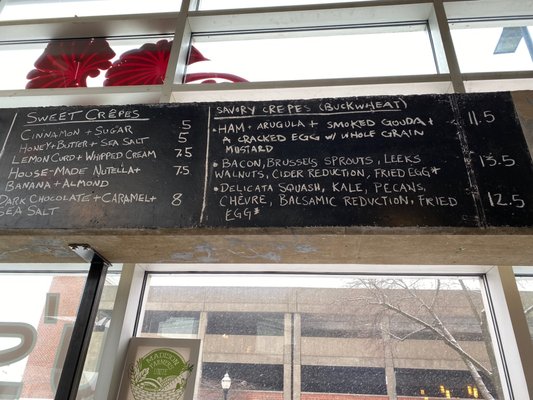 SWEET CRÊPES
CINNAMON + SUGAR 5
HONEY + BUTTER + SEA SALT 5
LEMON CURD + WHIPPED CREAM 7.5
HOUSE-MADE NUTELLA + 7.5
BANANA + ALMOND
DARK CHOCOLATE + CARAMEL + 8
SEA SALT
SAVORY CREPES (BUCKWHEAT)
• HAM + ARUGULA + SMOKED GOUDA + 11.5
A CRACKED EGG W/ WHOLE GRAIN
MUSTARD
• BACON, BRUSSELS SPROUTS, LEEKS 13.5
WALNUTS, CIDER REDUCTION, FRIED EGG*
• DELICATA SQUASH, KALE, PECANS, 12.5
CHÈVRE, BALSAMIC REDUCTION, FRIED
EGG*
MADISON
FARMERS